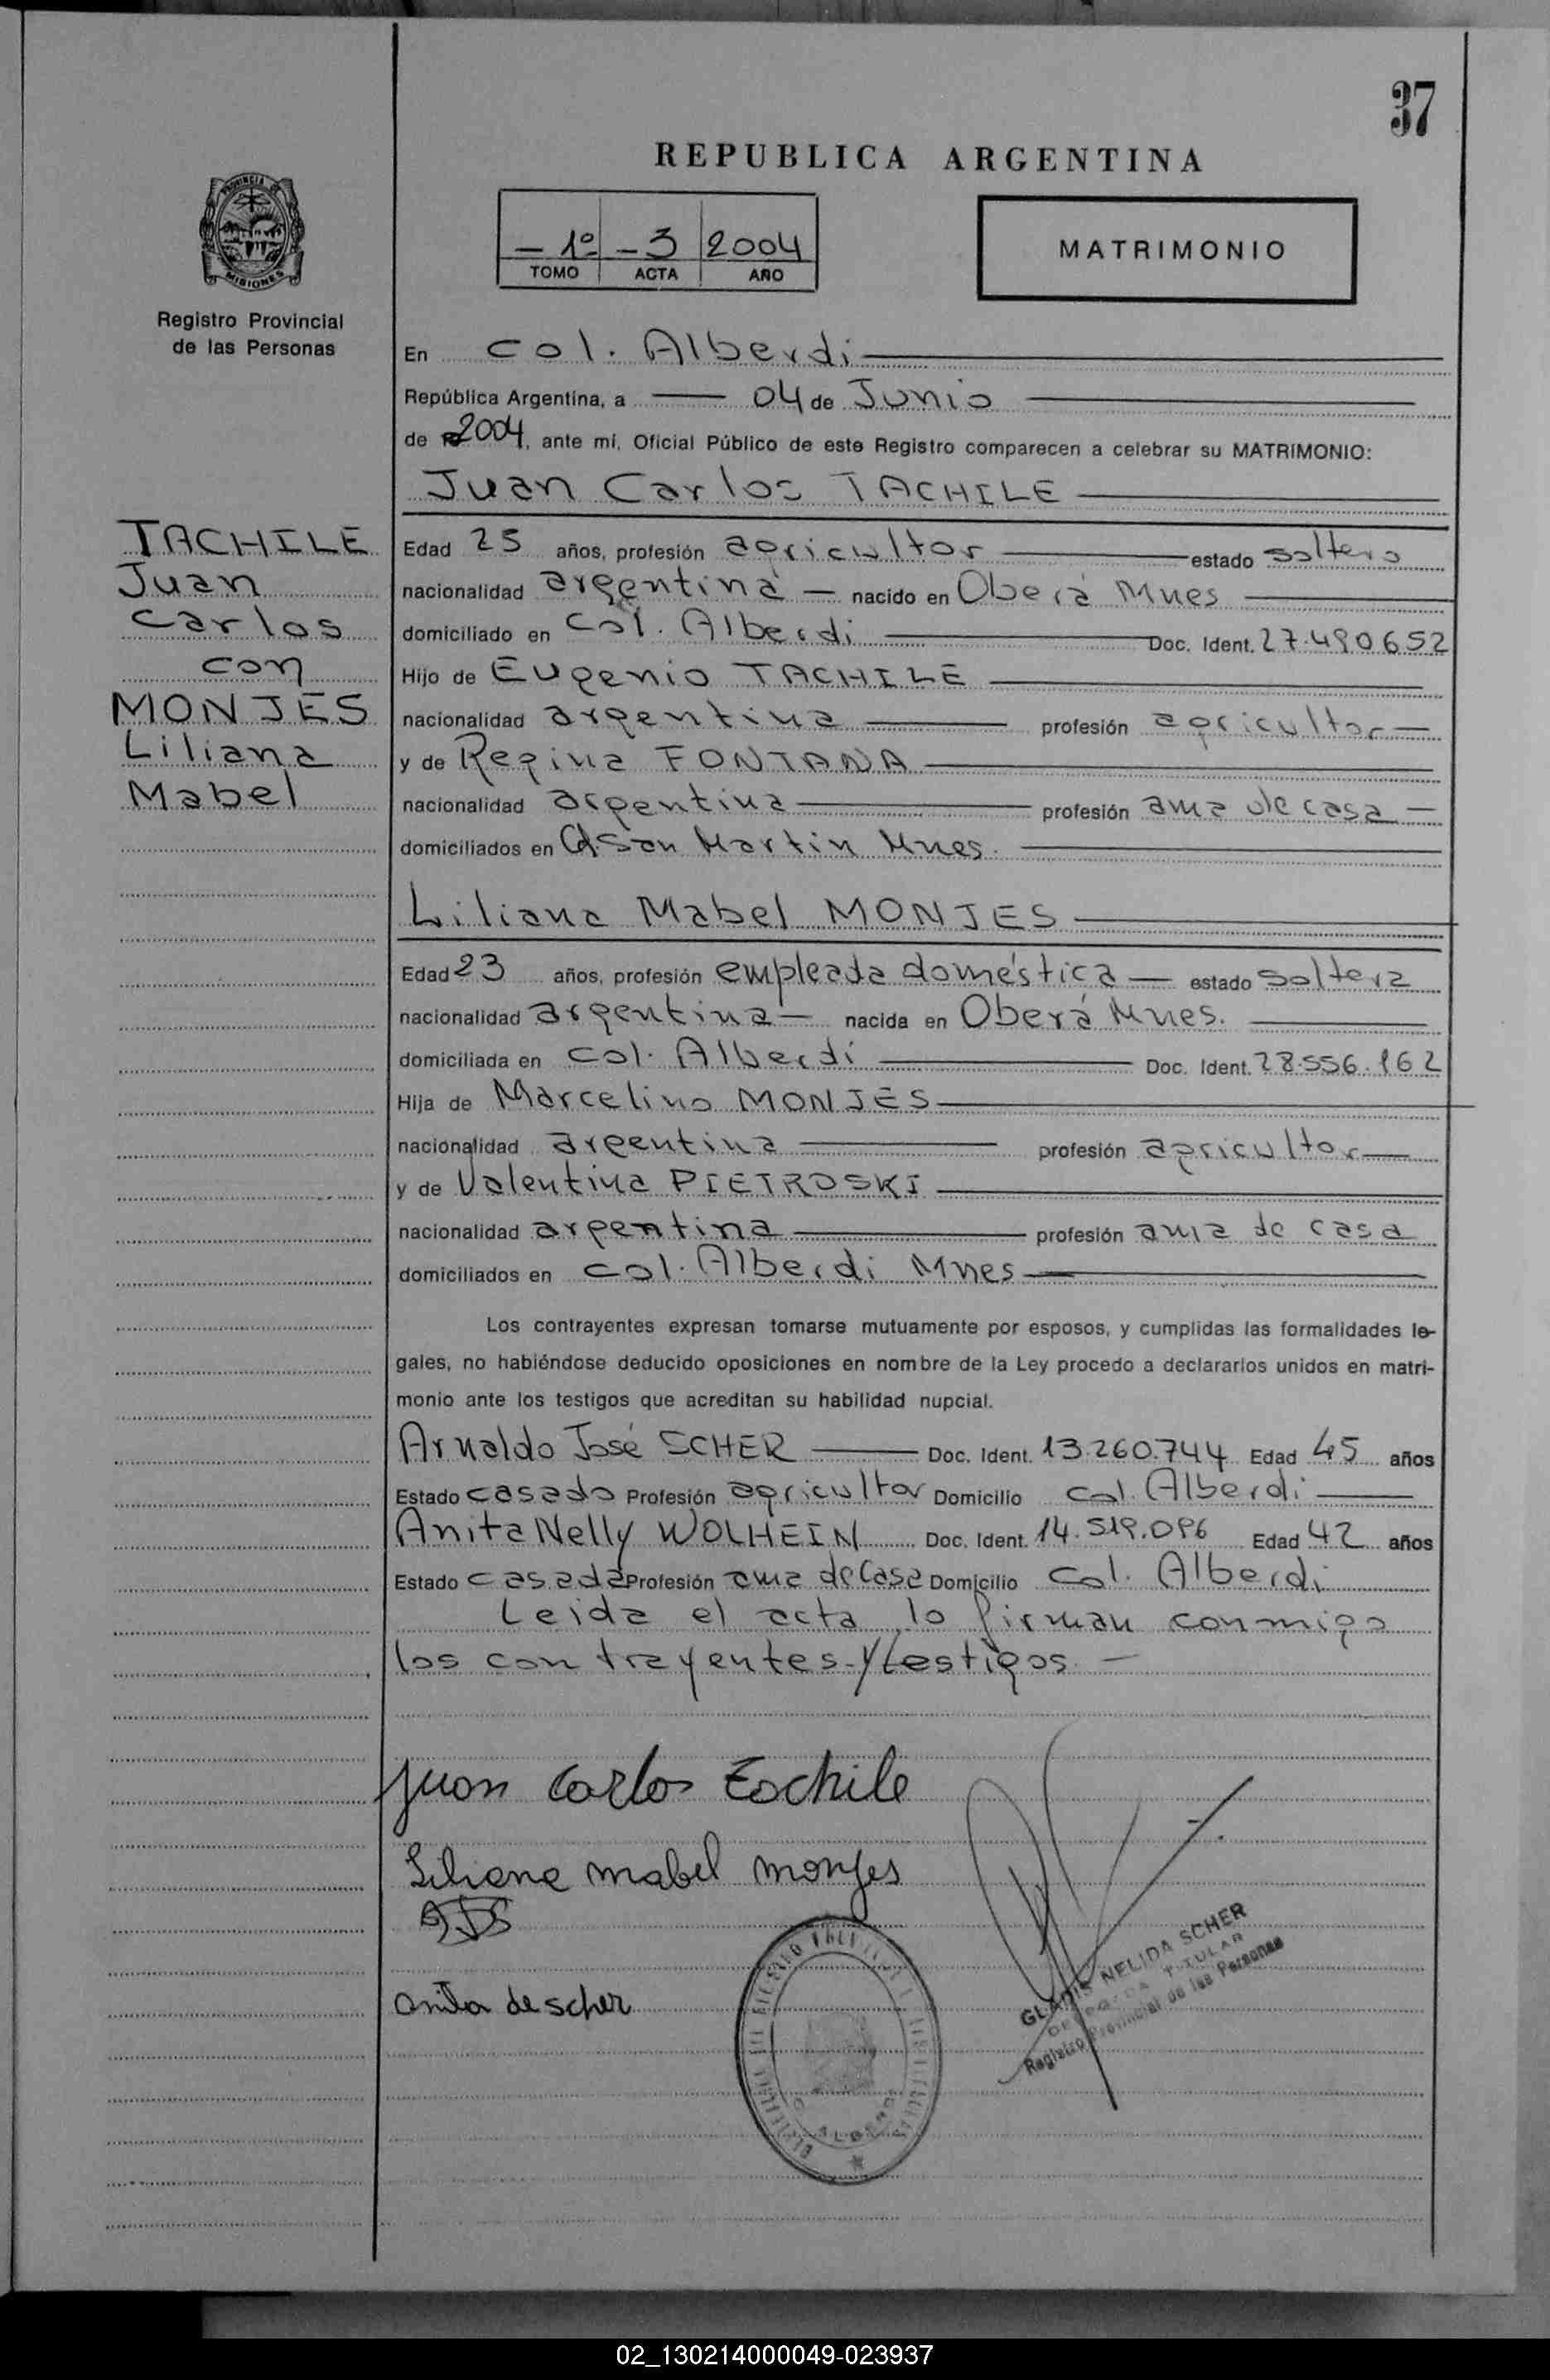 37
REPUBLICA ARGENTINA
PROVINCIA DE
MISIONES
Registro Provincial
de las Personas
- 1º - 3 2004
TOMO ACTA AÑO
MATRIMONIO
En Col. Alberdi
República Argentina, a 04 de Junio
de 2004, ante mí, Oficial Público de este Registro comparecen a celebrar su MATRIMONIO:
Juan Carlos TACHILE
TACHILE
Juan
Carlos
con
MONJES
Liliana
Mabel
Edad 25 años, profesión agricultor estado soltero
nacionalidad argentina nacido en Oberá Mnes
domiciliado en Col. Alberdi Doc. Ident. 27.490652
Hijo de Eugenio TACHILE
nacionalidad argentina profesión agricultor
y de Regina FONTANA
nacionalidad argentina profesión ama de casa
domiciliados en San Martin Mnes.
Liliana Mabel MONJES
Edad 23 años, profesión empleada doméstica estado soltera
nacionalidad argentina nacida en Oberá Mnes.
domiciliada en Col. Alberdi Doc. Ident. 28.556.162
Hija de Marcelino MONJES
nacionalidad argentina profesión agricultor
y de Valentina PIETROSKI
nacionalidad argentina profesión ama de casa
domiciliados en Col. Alberdi Mnes
Los contrayentes expresan tomarse mutuamente por esposos, y cumplidas las formalidades le-
gales, no habiéndose deducido oposiciones en nombre de la Ley procedo a declararlos unidos en matri-
monio ante los testigos que acreditan su habilidad nupcial.
Arnaldo José SCHER Doc. Ident. 13.260.744 Edad 45 años
Estado casado Profesión agricultor Domicilio Col. Alberdi
Anita Nelly WOLHEIN Doc. Ident. 14.519.096 Edad 42 años
Estado casada Profesión ama de Casa Domicilio Col. Alberdi
Leida el acta, lo firman conmigo
los contrayentes y testigos. -
Juan Carlos Tachile
Liliana mabel monjes
AJS
anita de scher
GLADIS NELIDA SCHER
TITULAR
Registro Provincial de las Personas
02_130214000049-023937